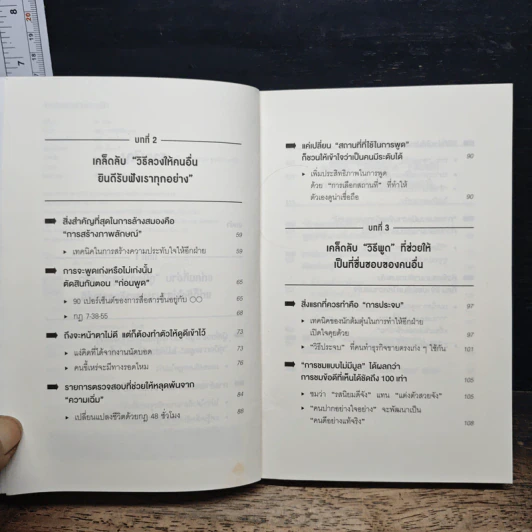 20
9
บทที่ 2
เคล็ดลับ "วิธีลวงให้คนอื่น
ยินดีรับฟังเราทุกอย่าง"
สิ่งสำคัญที่สุดในการล้างสมองคือ
"การสร้างภาพลักษณ์" 59
▸ เทคนิคในการสร้างความประทับใจให้อีกฝ่าย 59
การจะพูดเก่งหรือไม่เก่งนั้น
ตัดสินกันตอน "ก่อนพูด" 65
▸ 90 เปอร์เซ็นต์ของการสื่อสารขึ้นอยู่กับ ○○ 65
▸ กฎ 7-38-55 68
ถึงจะหน้าตาไม่ดี แต่ก็ต้องทำตัวให้ดูดีเข้าไว้ 73
▸ แง่คิดที่ได้จากงานนัดบอด 73
▸ คนขี้เหร่จะมีทางรอดไหม 76
รายการตรวจสอบที่ช่วยให้หลุดพ้นจาก
"ความเฉิ่ม" 84
▸ เปลี่ยนแปลงชีวิตด้วยกฎ 48 ชั่วโมง 88
แค่เปลี่ยน "สถานที่ที่ใช้ในการพูด"
ก็ชวนให้เข้าใจว่าเป็นคนมีระดับได้ 90
▸ เพิ่มประสิทธิภาพในการพูด
ด้วย "การเลือกสถานที่" ที่ทำให้
ตัวเองดูน่าเชื่อถือ 90
บทที่ 3
เคล็ดลับ "วิธีพูด" ที่ช่วยให้
เป็นที่ชื่นชอบของคนอื่น
สิ่งแรกที่ควรทำคือ "การประจบ" 97
▸ เทคนิคของนักต้มตุ๋นในการทำให้อีกฝ่าย
เปิดใจคุยด้วย 97
▸ "วิธีประจบ" ที่คนทำธุรกิจขายตรงเก่ง ๆ ใช้กัน 101
"การชมแบบไม่มีมูล" ได้ผลกว่า
การชมข้อดีที่เห็นได้ชัดถึง 100 เท่า 105
▸ ชมว่า "รสนิยมดีจัง" แทน "แต่งตัวสวยจัง" 105
▸ "คนปากอย่างใจอย่าง" จะพัฒนาเป็น
"คนดีอย่างแท้จริง" 108